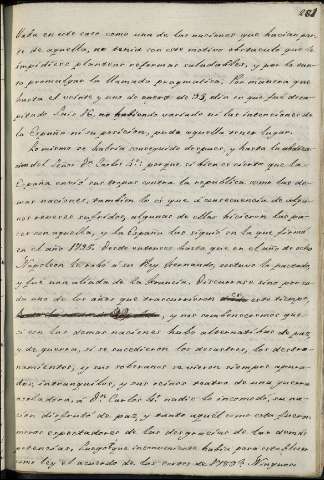 281
Usda en este caso como una de las naciones que hacian par-
te de aquella, no tenia con este motivo obstaculo que la
impidiese plantear reformas saludables, y por lo tan-
to promulgar la llamada pragmatica. Por manera que
hasta el veinte y uno de enero de 93, dia en que fué deca-
pitado Luis 16, no habiendo variado ni las intenciones de
la España ni su posicion, pudo aquella tener lugar.
Lo mismo se habria conseguido despues, y hasta la abdica-
cion del Señor Dn. Carlos 4º: porque si bien es cierto que la
España envió sus tropas contra la republica como las de-
mas naciones, tambien lo es que á consecuencia de algu-
nos reveses sufridos, algunas de ellas hicieron las pa-
ces con aquella, y la España las siguió en la que firmó
en el año 1795. Desde entonces hasta que en el año de ocho
Napoleon le robó á su Rey Fernando, estuvo la pactada
y fué una aliada de la Francia. Discurrase sino por ca-
da uno de los años que trascurrieron este tiempo,
y nos convenceremos que
si con las demas naciones hubo alternativas de paz
y de guerra, si se sucedieron los desastres, los destro-
namientos, y sus soberanos se vieron siempre apura-
dos, intranquilos, y sus reinos teatro de una guerra
asoladora, á Dn. Carlos 4º nadie lo incomodó, su na-
cion disfrutó de paz, y tanto aquel como esta fueron
meros espectadores de las desgracias de las demas
potencias. Luego que inconveniente habia para establecer
como ley el acuerdo de las cortes de 1789? Ninguno